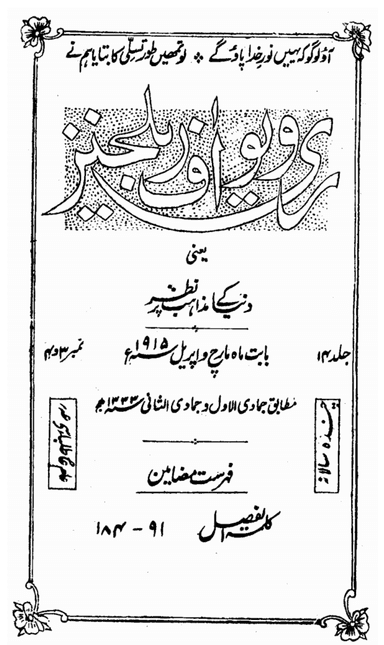 آؤ لوگو کہ یہیں نورِ خدا پاؤ گے ٭ لو تمھیں طور تسلّی کا بتایا ہم نے
ریویو آف ریلیجنز
یعنی
دنیا کے مذاہب پر نظر
جلد ۱۴
بابت ماہ مارچ و اپریل سنہ ۱۹۱۵ء
نمبر ۳ و ۴
مطابق جمادی الاول و جمادی الثانی سنہ ۱۳۳۳ھ
چندہ سالانہ
فہرست مضامین
کلمۃ الفصل ۹۱ - ۱۸۴